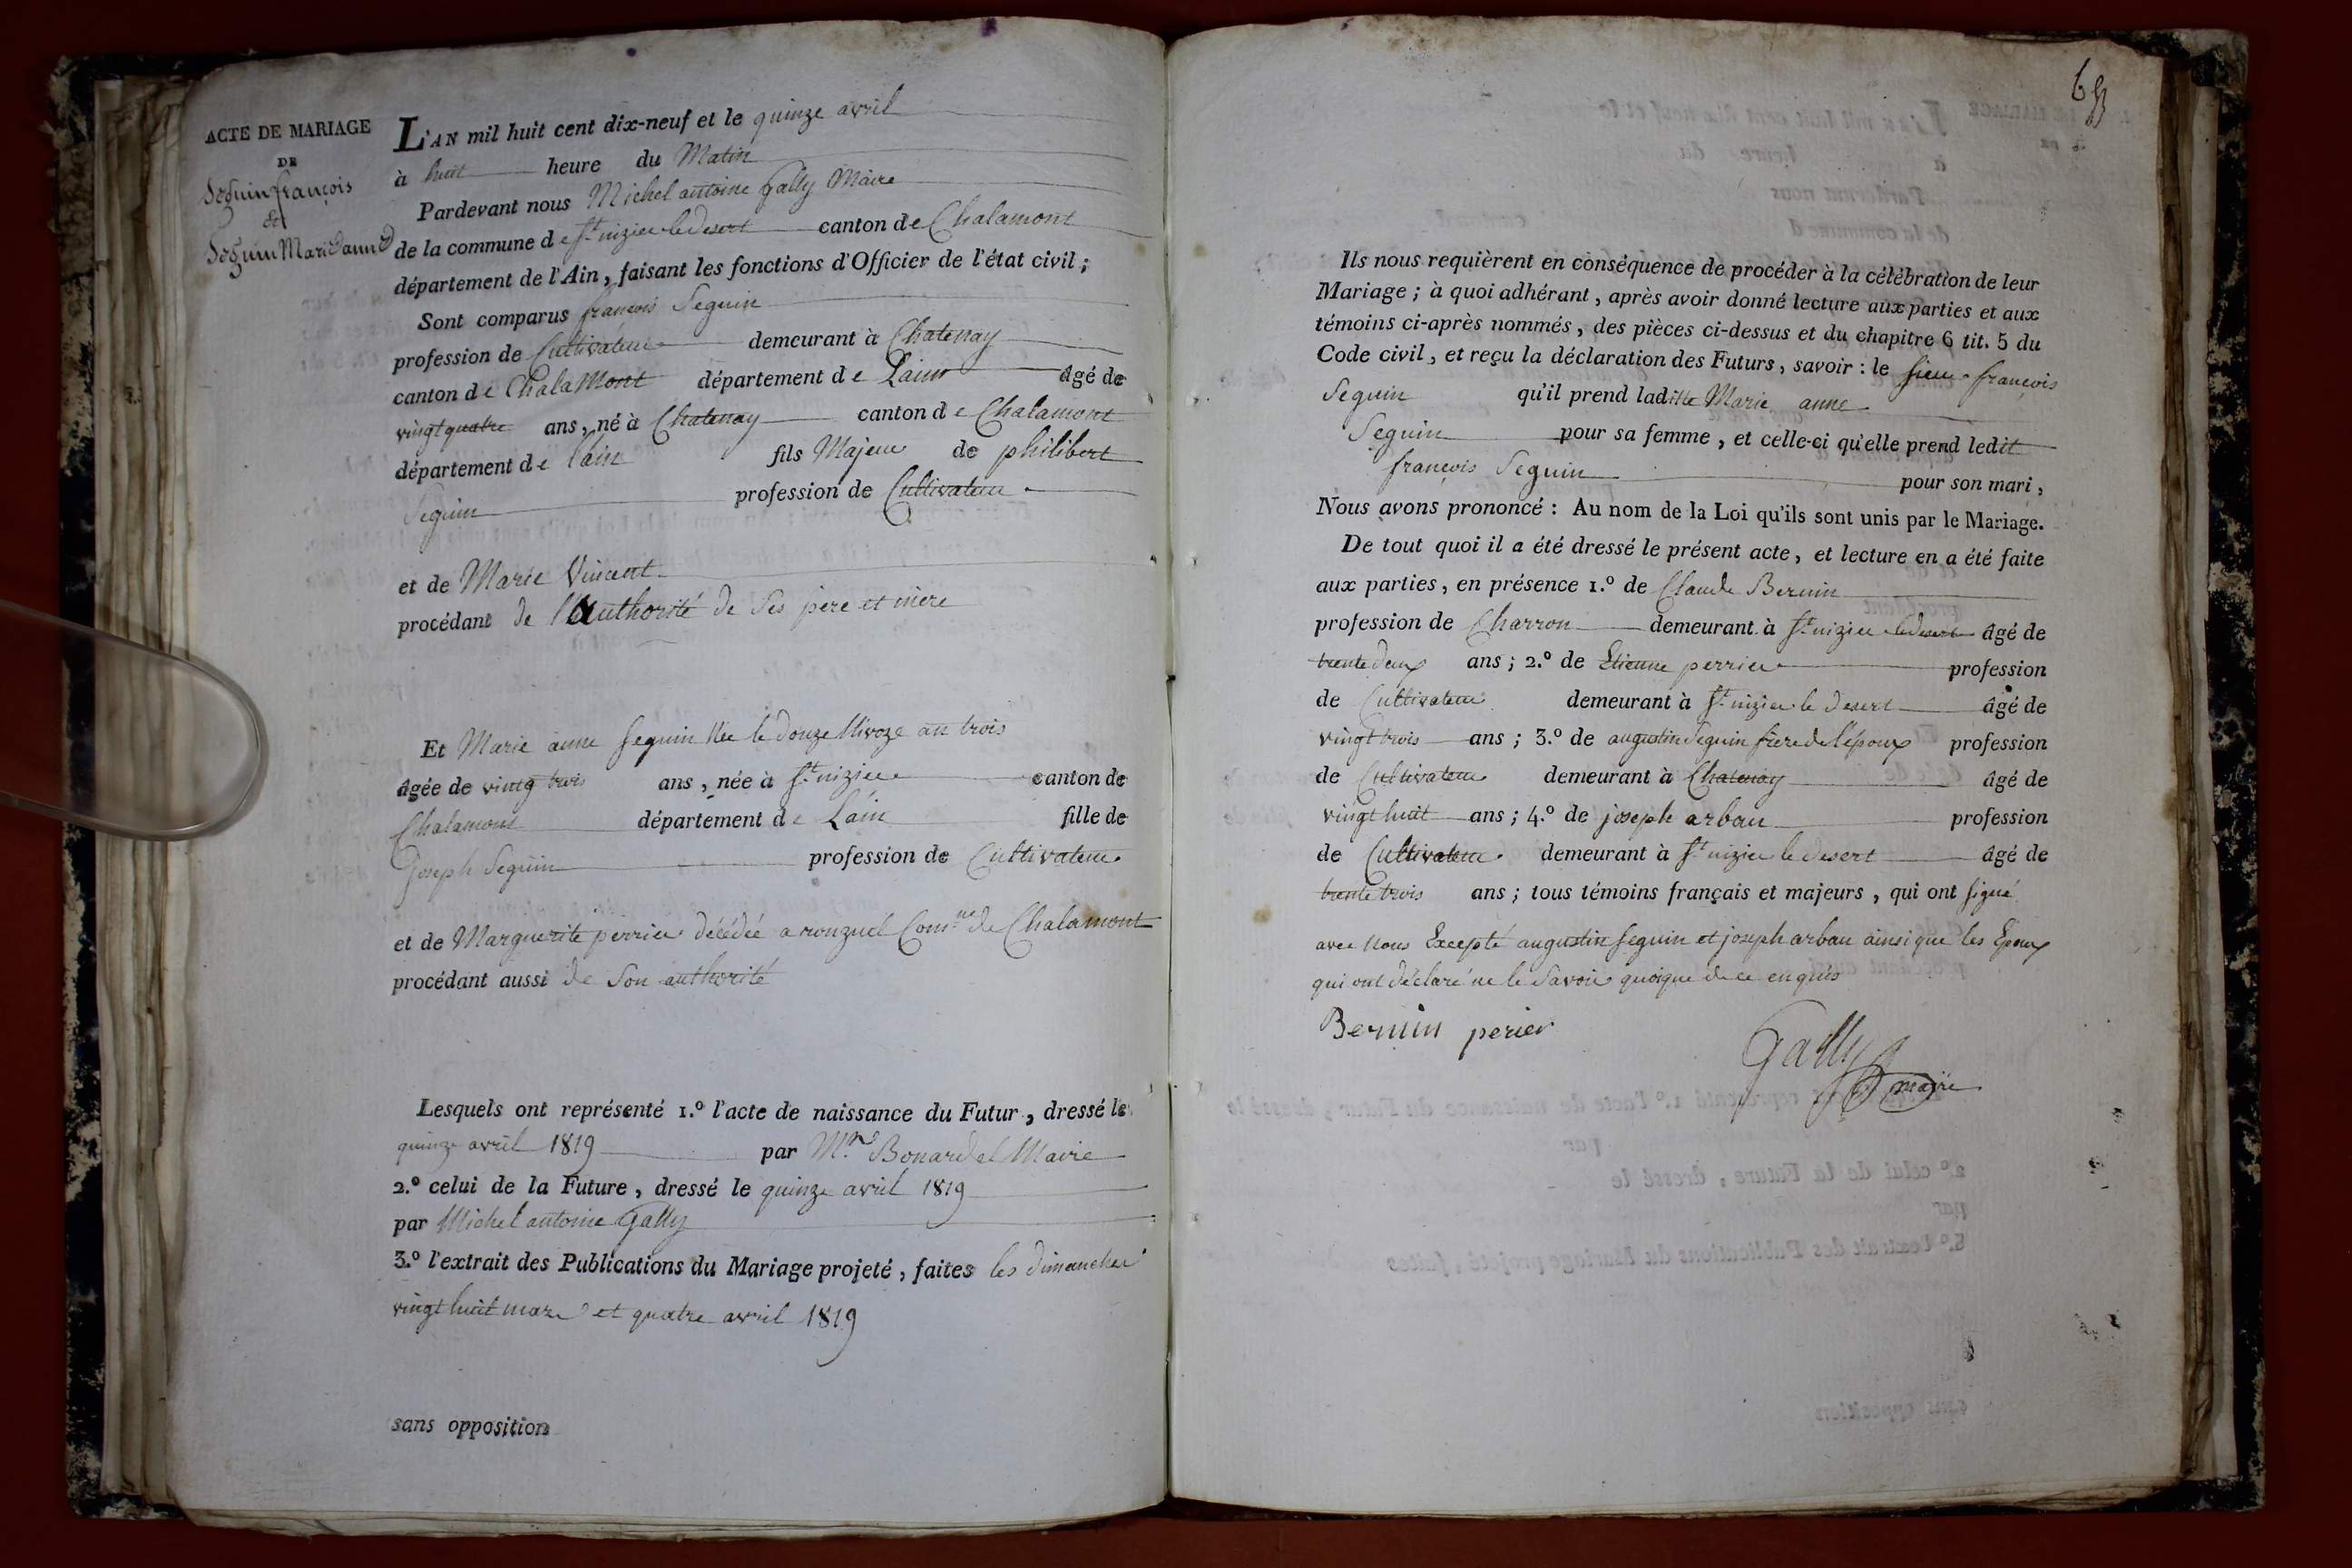 ACTE DE MARIAGE
DE
Seguin françois
et
Seguin Marie anne
L'AN mil huit cent dix-neuf et le quinze avril
à huit heure du Matin
Pardevant nous Michel antoine Gally Maire
de la commune de St. nizier le desert canton de Chalamont
département de l'Ain, faisant les fonctions d'Officier de l'état civil;
Sont comparus françois Seguin
profession de Cultivateur demeurant à Chatenay
canton de ChalaMont département de Lain âgé de
vingt quatre ans, né à Chatenay canton de Chalamont
département de lain fils Majeur de philibert
Seguin profession de Cultivateur
et de Marie Vincent
procédant de l'Authorité de Ses pere et mere
Et Marie anne Seguin Née le douze Nivoze an trois
âgée de vintg trois ans, née à St. nizier canton de
Chalamont département de Lain fille de
Joseph Seguin profession de Cultivateur
et de Marguerite perrier décédée a ronzuel Comne de Chalamont
procédant aussi de Son authorité
Lesquels ont représenté 1.º l'acte de naissance du Futur, dressé le
quinze avril 1819 par Mr. Bonardel Maire
2.º celui de la Future, dressé le quinze avril 1819
par Michel antoine Gally
3.º l'extrait des Publications du Mariage projeté, faites les dimanches
vingt huit mars et quatre avril 1819
sans opposition
Ils nous requièrent en conséquence de procéder à la célébration de leur
Mariage; à quoi adhérant, après avoir donné lecture aux parties et aux
témoins ci-après nommés, des pièces ci-dessus et du chapitre 6 tit. 5 du
Code civil, et reçu la déclaration des Futurs, savoir: le sieur françois
Seguin qu'il prend laditte Marie anne
Seguin pour sa femme, et celle-ci qu'elle prend ledit
françois Seguin pour son mari,
Nous avons prononcé: Au nom de la Loi qu'ils sont unis par le Mariage.
De tout quoi il a été dressé le présent acte, et lecture en a été faite
aux parties, en présence 1.º de Claude Bernin
profession de Charron demeurant à St. nizier le desert âgé de
trente deux ans; 2.º de Etienne perrier profession
de Cultivateur demeurant à St. nizier le desert âgé de
vingt trois ans; 3.º de augustin Seguin frere de l'époux profession
de Cultivateur demeurant à Chatenay âgé de
vingt huit ans; 4.º de joseph arban profession
de Cultivateur demeurant à St. nizier le desert âgé de
trente trois ans; tous témoins français et majeurs, qui ont signé
avec Nous Excepté augustin Seguin et joseph arban ainsi que les Epoux
qui ont déclaré ne le Savoir quoique de ce enquis
Bernin perier
Gally
maire